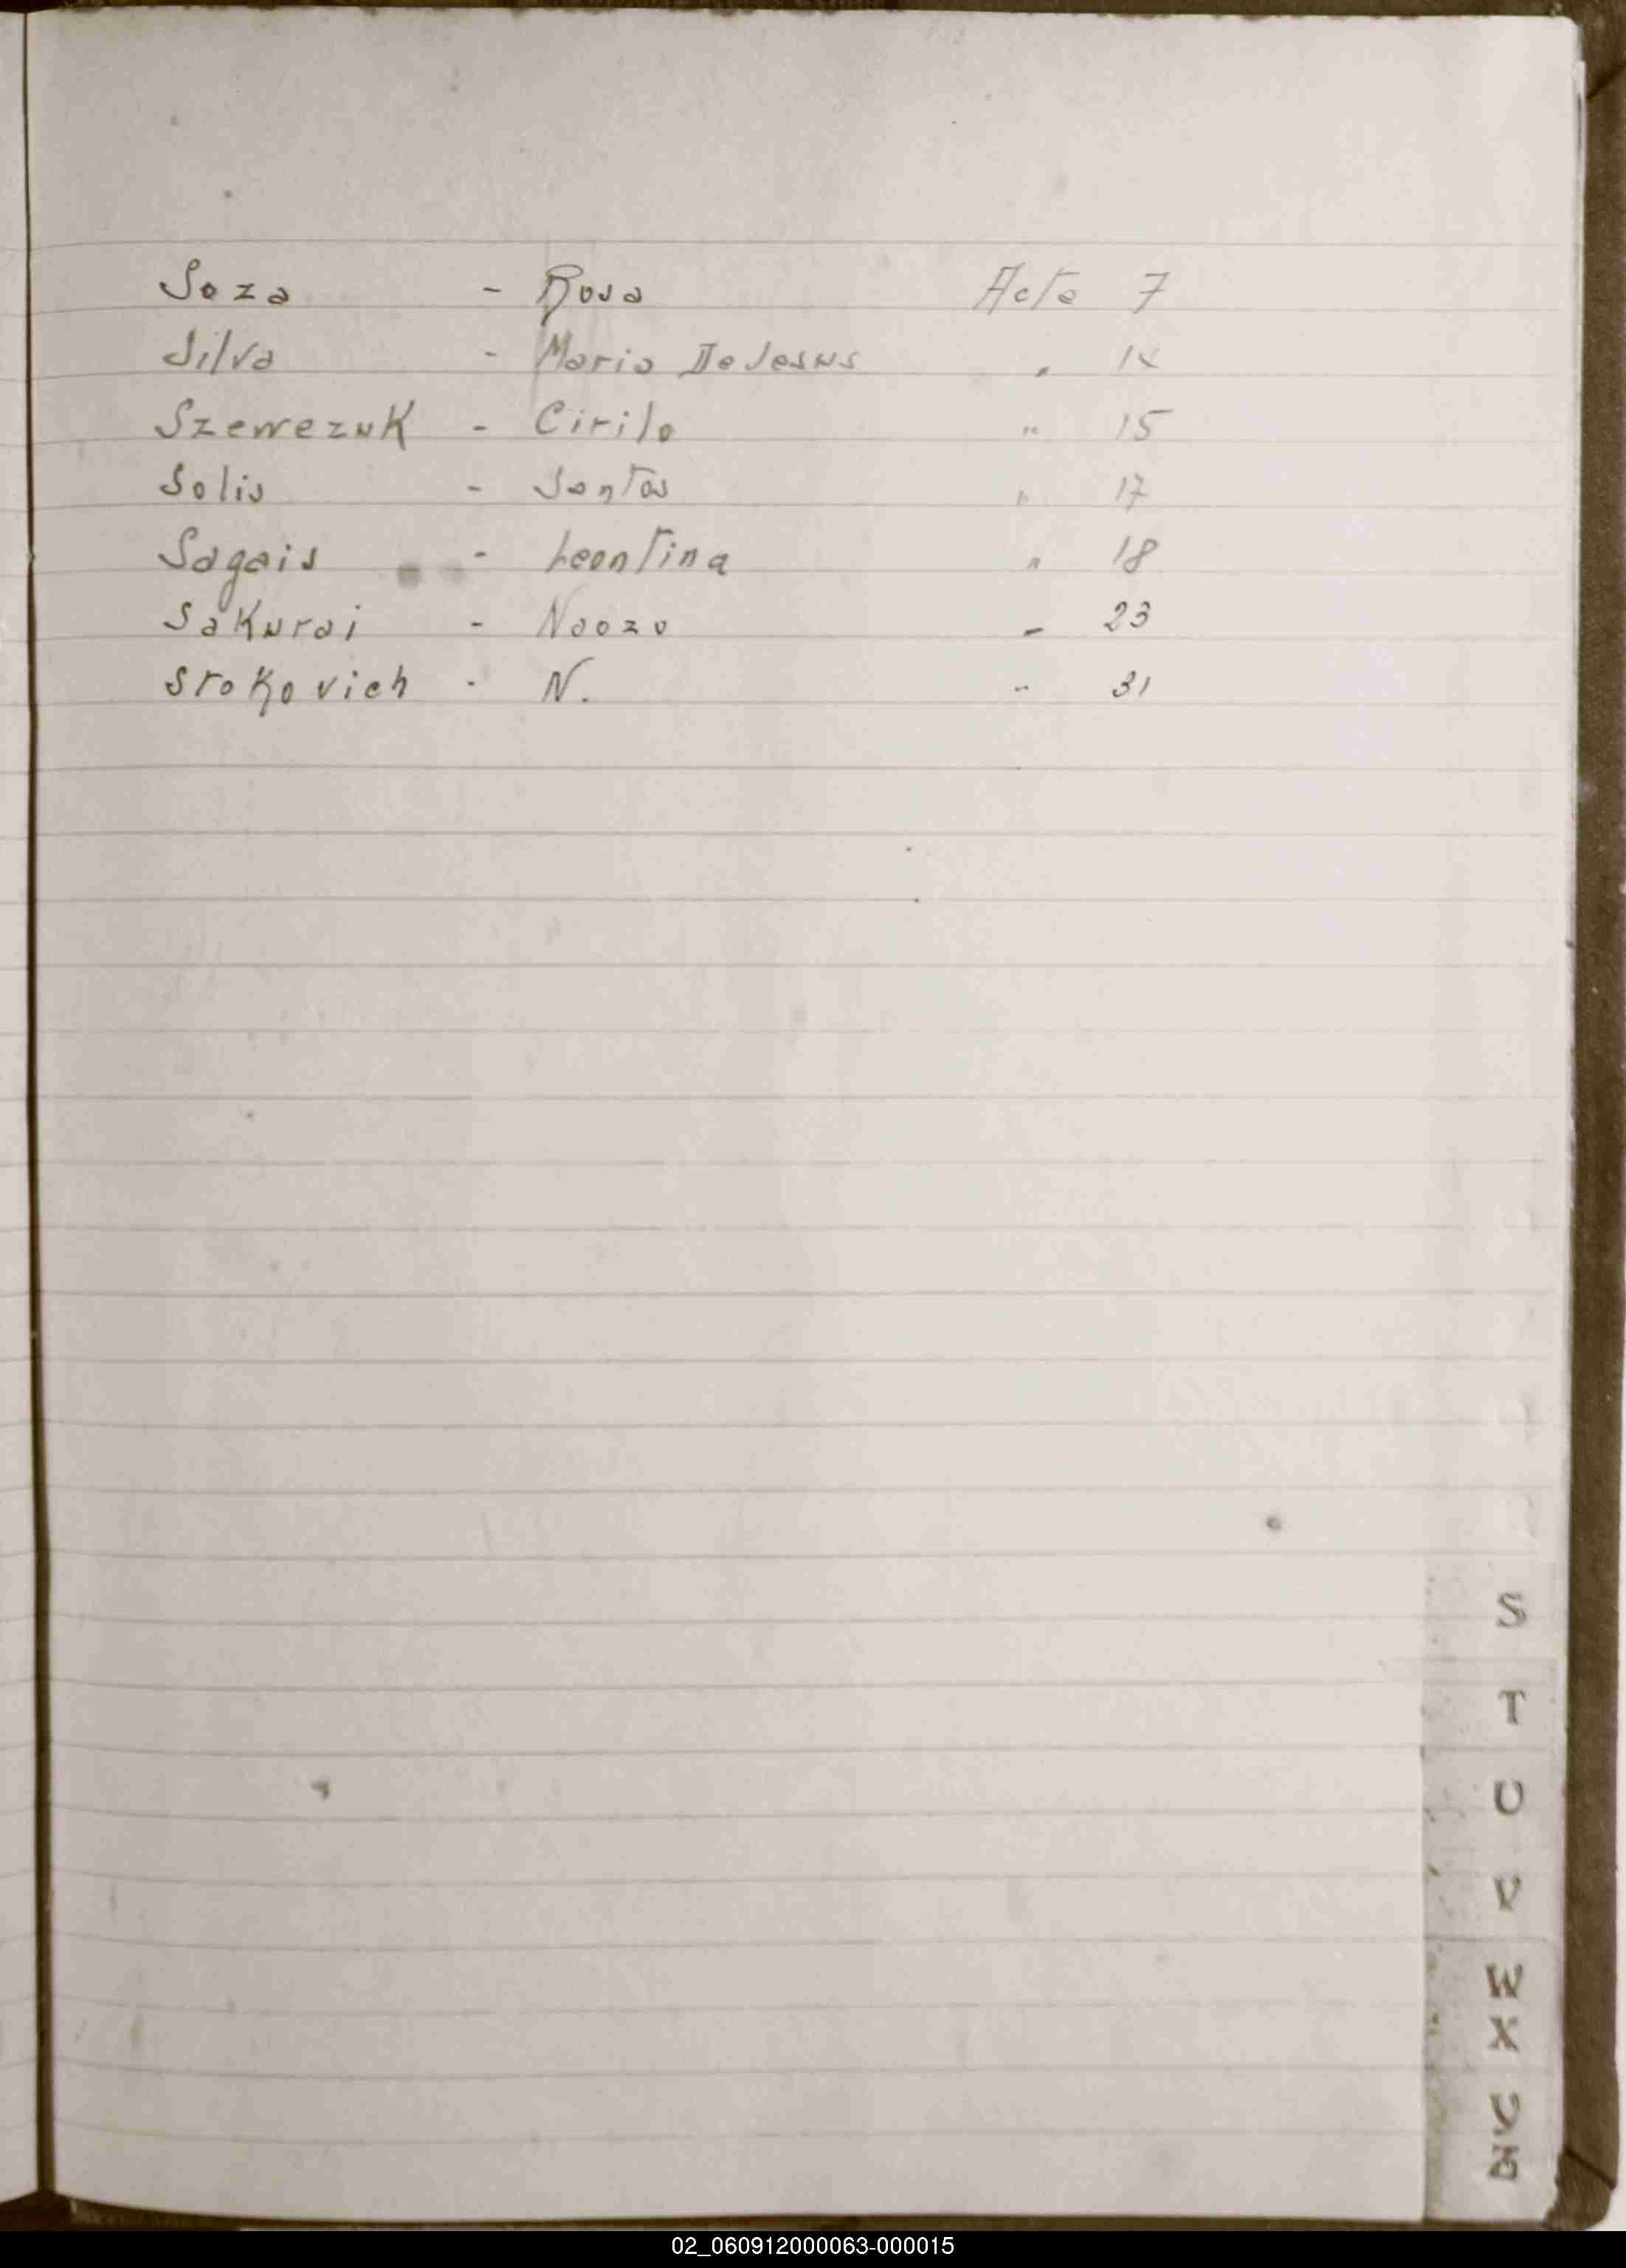 Soza - Rosa Acta 7
Silva - Maria De Jesus " 14
Szewezuk - Cirilo " 15
Solis - Santos " 17
Sagais - Leontina " 18
Sakurai - Naozo " 23
Stokovich - N. " 31
S
T
U
V
W
X
Y
Z
02_060912000063-000015